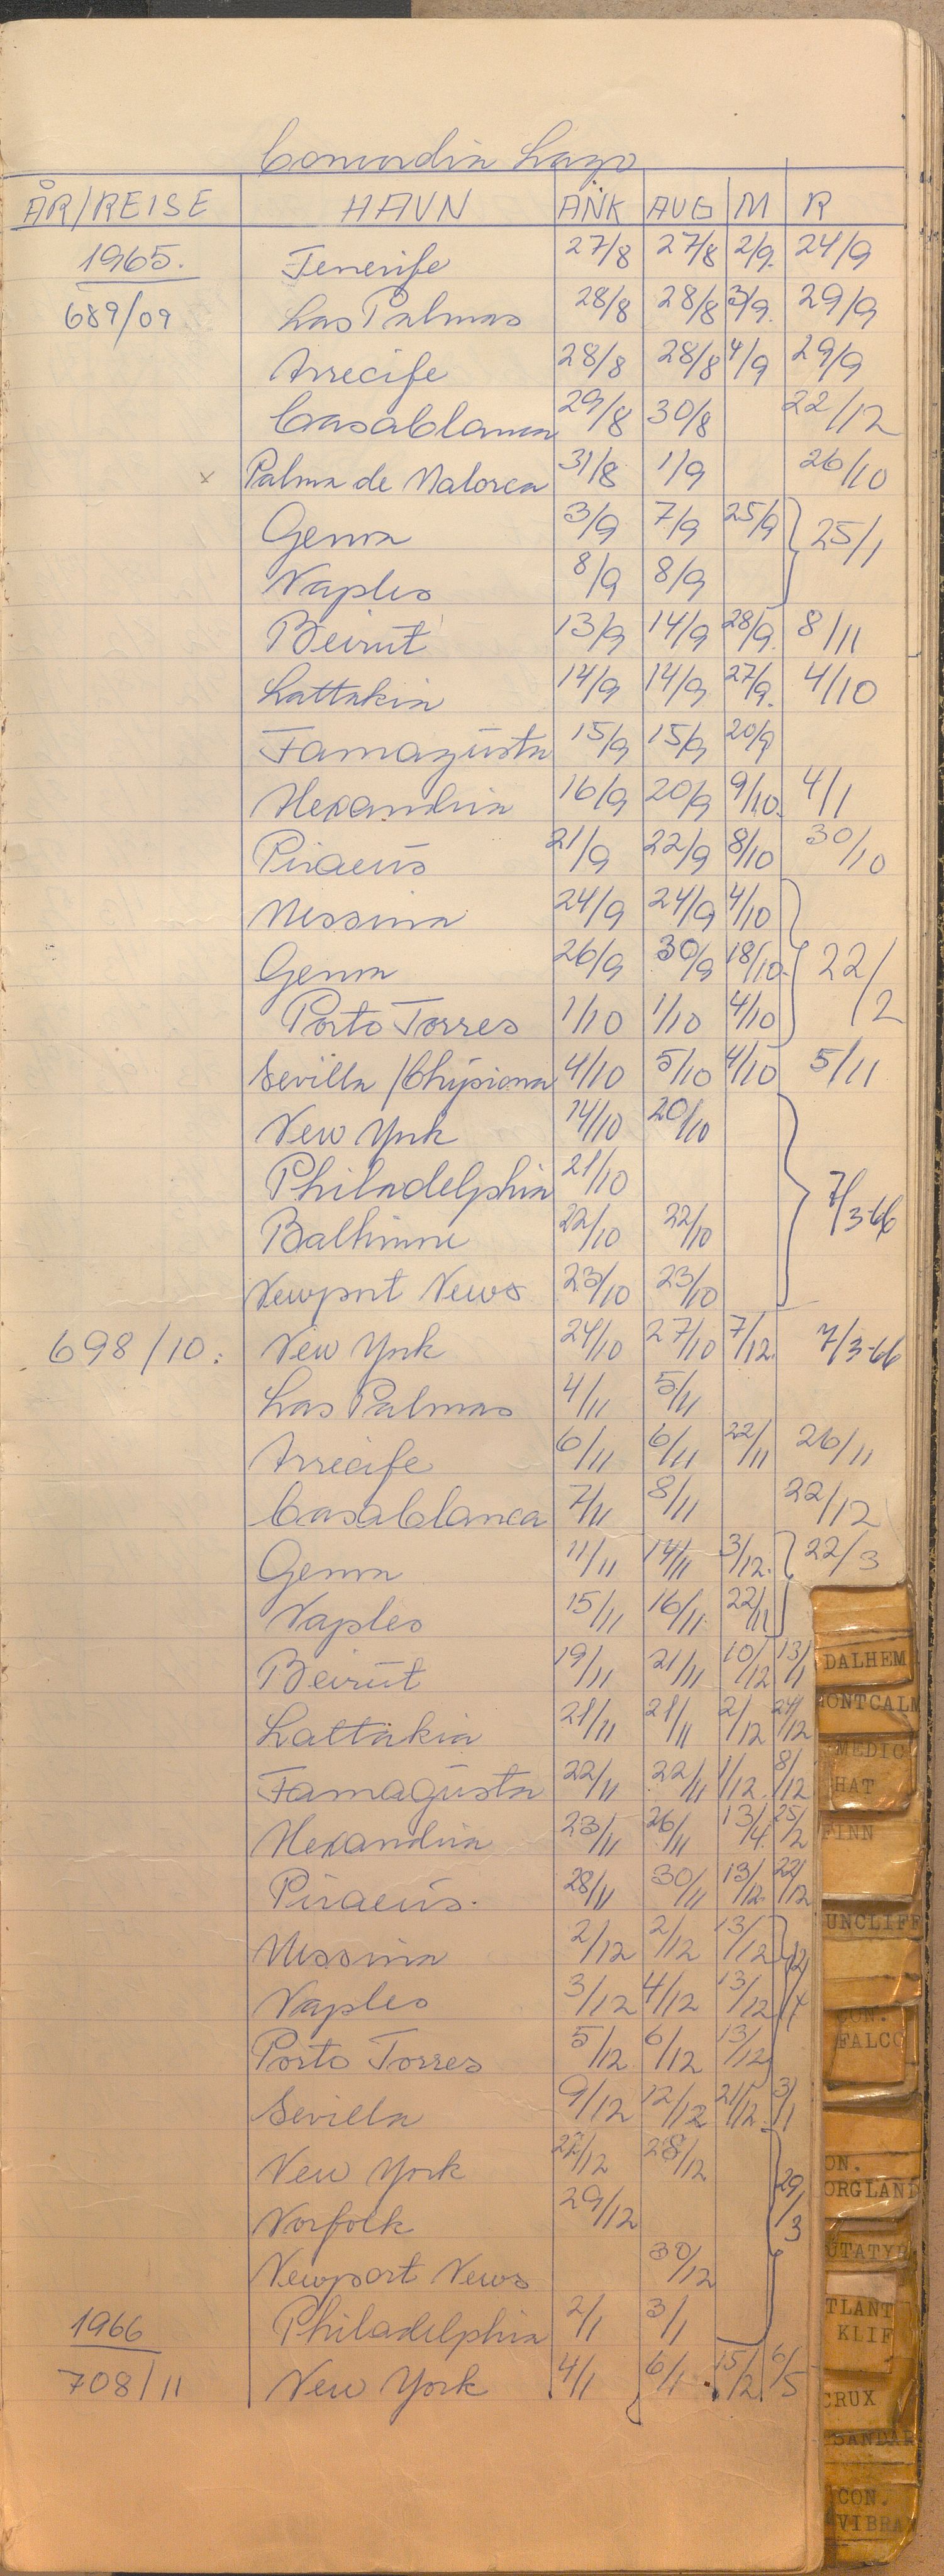 Concordia Lago
ÅR/REISE HAVN ANK AVG M R
1965. Tenerife 27/8 27/8 2/9. 24/9
689/09 Las Palmas 28/8 28/8 3/9. 29/9
Arrecife 28/8 28/8 4/9 29/9
Casablanca 29/8 30/8 22/12
x Palma de Malorca 31/8 1/9 26/10
Genoa 3/9 7/9 25/9 } 25/1
Naples 8/9 8/9
Beirut 13/9 14/9 28/9. 8/11
Lattakia 14/9 14/9 27/9. 4/10
Famagusta 15/9 15/9 20/9
Alexandria 16/9 20/9 9/10. 4/1
Piraeus 21/9 22/9 8/10 30/10
Messina 24/9 24/9 4/10 }
Genoa 26/9 30/9 18/10. } 22/2
Porto Torres 1/10 1/10 4/10
Sevilla /Chipiona 4/10 5/10 4/10 5/11
New York 14/10 20/10 }
Philadelphia 21/10 7/3-66
Baltimore 22/10 22/10
Newport News 23/10 23/10
698/10. New York 24/10 27/10 7/12. 7/3-66
Las Palmas 4/11 5/11
Arrecife 6/11 6/11 22/11 26/11
Casablanca 7/11 8/11 22/12
Genoa 11/11 14/11 3/12. } 22/3
Naples 15/11 16/11 22/11
Beirut 19/11 21/11 10/12 13/1
Lattakia 21/11 21/11 2/12 24/12
Famagusta 22/11 22/11 1/12. 8/12
Alexandria 23/11 26/11 13/4. 25/2
Piraeus. 28/11 30/11 13/12. 22/12
Messina 2/12 2/12 13/12 }
Naples 3/12 4/12 13/12
Porto Torres 5/12 6/12 13/12
Sevilla 9/12 12/12 21/12. 3/1
New York 28/12 }
Norfolk 29/12 29/3
Newport News 30/12
1966 Philadelphia 2/1 3/1
708/11 New York 4/1 6/1 15/2 6/5
DALHEM
MONTCALM
MEDIC
HAT
FINN
UNCLIFF
ON.
FALCO
ON.
ORGLAND
UTATYR
TLANT
KLIF
CRUX
SANDAR
CON.
VIBRA